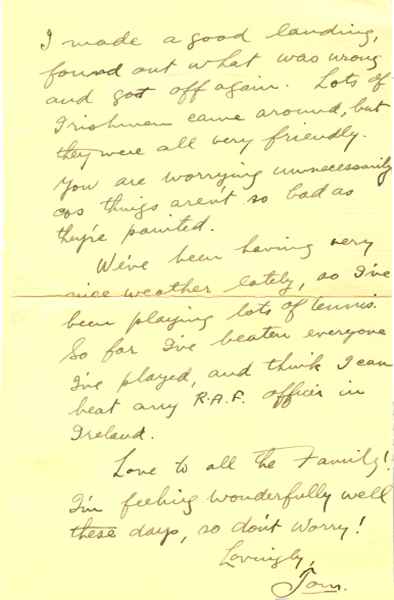 I made a good landing,
found out what was wrong
and got off again. Lots of
Irishmen came around, but
they were all very friendly.
You are worrying unnecessarily
as things aren't so bad as
they're painted.
We've been having very
nice weather lately, so I've
been playing lots of tennis.
So far I've beaten everyone
I've played, and think I can
beat any R.A.F. officer in
Ireland.
Love to all the Family!
I'm feeling wonderfully well
these days, so don't worry!
Lovingly,
Tom.